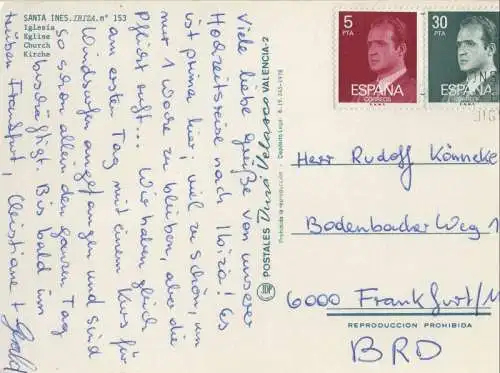 SANTA INES. IBIZA. nº 153
Iglesia
Eglise
Church
Kirche
Viele liebe Grüße von unserer
Hochzeitsreise nach Ibiza! Es
ist prima hier; viel zu schön, um
nur 1 Woche zu bleiben, aber die
Pflicht ruft... Wir haben gleich
am ersten Tag mit einem Kurs für
Windsurfen angefangen und sind
so schon allein den ganzen Tag
beschäftigt. Bis bald im
trüben Frankfurt, Christiane + Gerald
POSTALES José Velasco VALENCIA-2
Prohibida la reproducción
Depósito Legal
5
PTA
ESPAÑA
CORREOS
30
PTA
ESPAÑA
CORREOS
Herr Rudolf Könneke
Bodenbacher Weg 1
6000 Frankfurt/M
REPRODUCCION PROHIBIDA
BRD